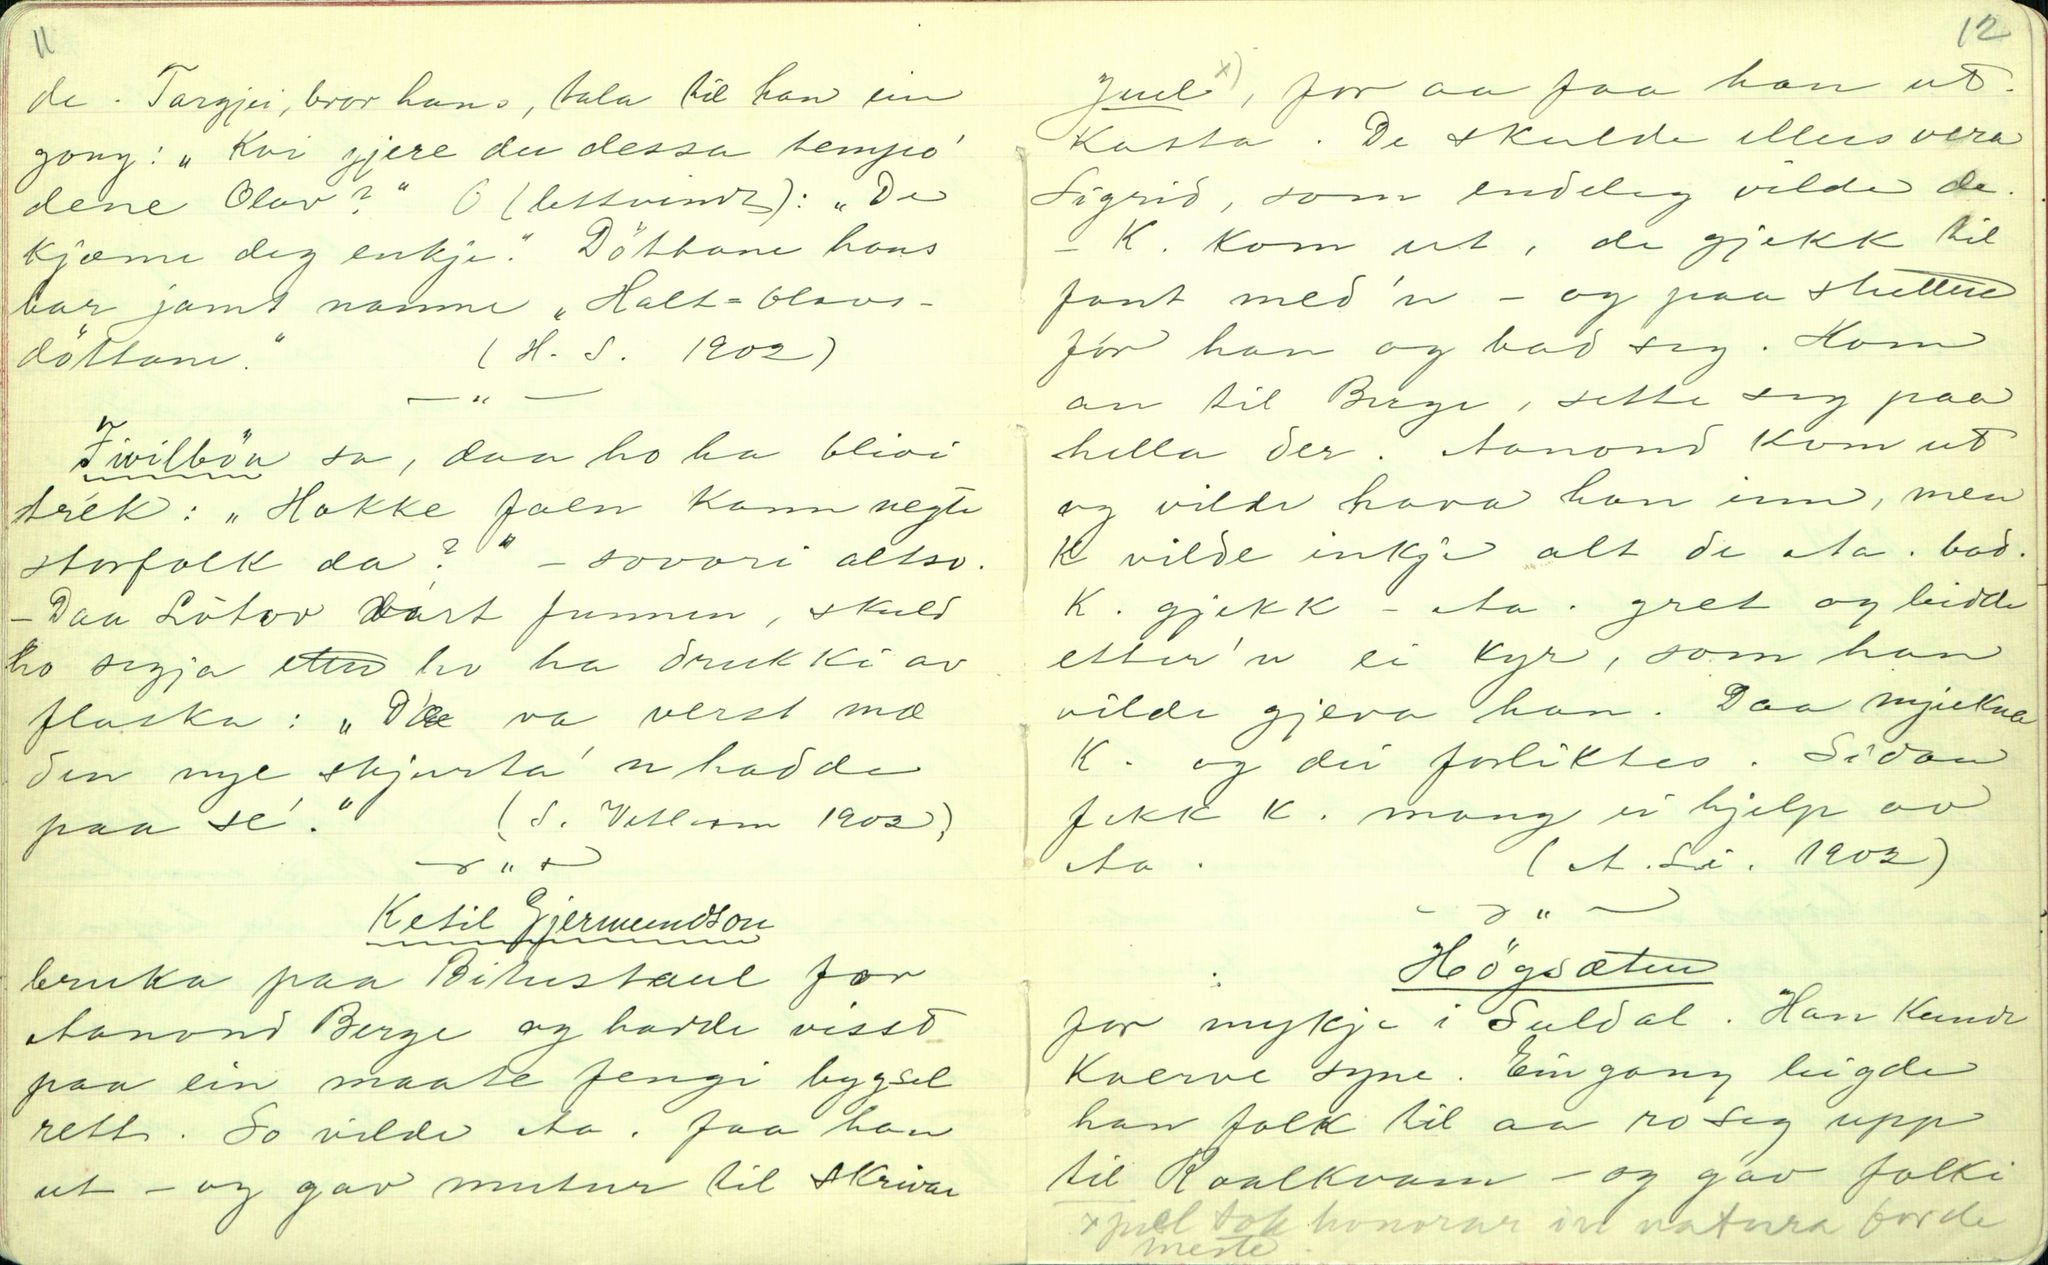 11
de. Targjei, bror hans, tala til han ein
gong: „Kvi gjere du dessa tempó
dene Olav?" O (lettvindt): „De
kjæme deg enkje." Döttane hans
bar jamt namne „Halt-Olavs-
döttane." (H. S. 1902)
— „ —
Tivilbön sa, daa ho ha blivi
trek: „Hokke faen kann negte
storfolk da?" – sovori altso.
– Daa Lötov vart funnen, skuld
ho segja etter ho ha drukki av
flaska: „Dæ va verst mæ
den nye skjurta 'n hadde
paa sé." (S. 1902)
— „ —
Ketil Gjermundson
bruka paa Bitustaul for
Aanond Berge og hadde visst
paa ein maate fengi bygsel
rett. So vilde Aa. faa han
ut – og gav mutur til skrivar
12
Juel x), for aa faa han ut.
kasta. De skulde ellers vera
Sigrid, som endeleg vilde de.
– K. kom ut, de gjekk til
fant med 'n – og paa slutten
fór han og bad seg. Kom
an til Berge, sette seg paa
hella der. Aanond kom ut
og vilde hava han inn, men
K vilde inkje alt de Aa. bad.
K. gjekk – Aa. gret og leidde
etter 'n ei kyr, som han
vilde gjeva han. Daa mjukna
K. og dei forliktes. Sidan
fekk K. mang ei hjelp av
Aa. (A. Li. 1902)
— „ —
Högsæten
for mykje i Suldal. Han kunde
kverve syne. Ein gong leigde
han folk til aa ro seg upp
til Roalkvam – og gav folki
x juel tok honorar in natura for de
meste.